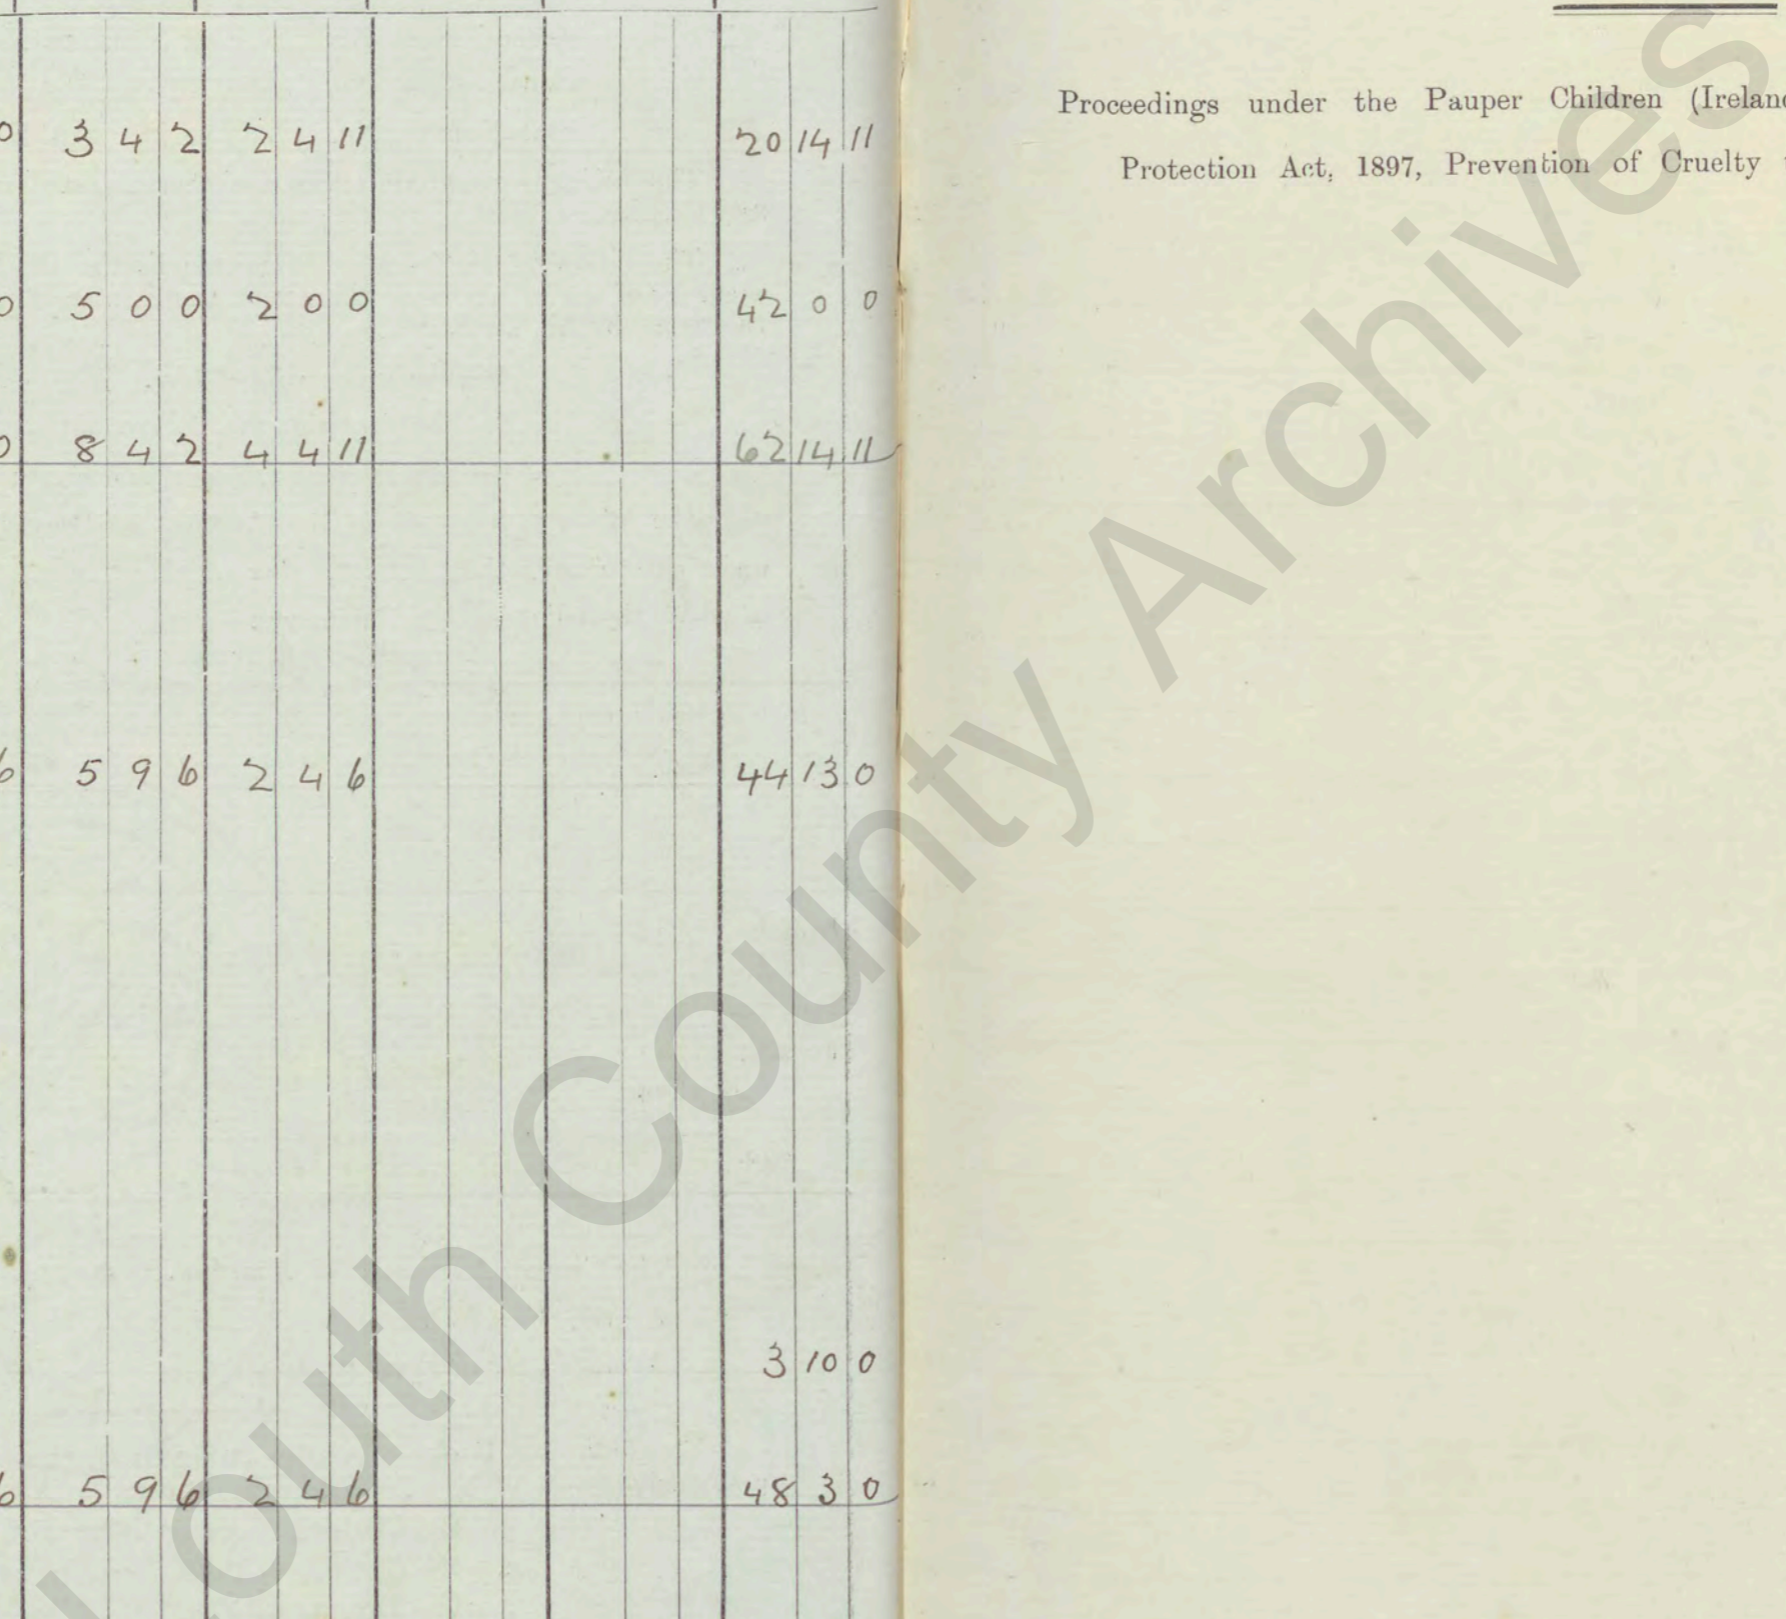 0 3 4 2 2 4 11 20 14 11
0 5 0 0 2 0 0 42 0 0
0 8 4 2 4 4 11 62 14 11
6 5 9 6 2 4 6 44 13 0
3 10 0
6 5 9 6 2 4 6 48 3 0
Proceedings under the Pauper Children (Ireland
Protection Act, 1897, Prevention of Cruelty
outh County Archives